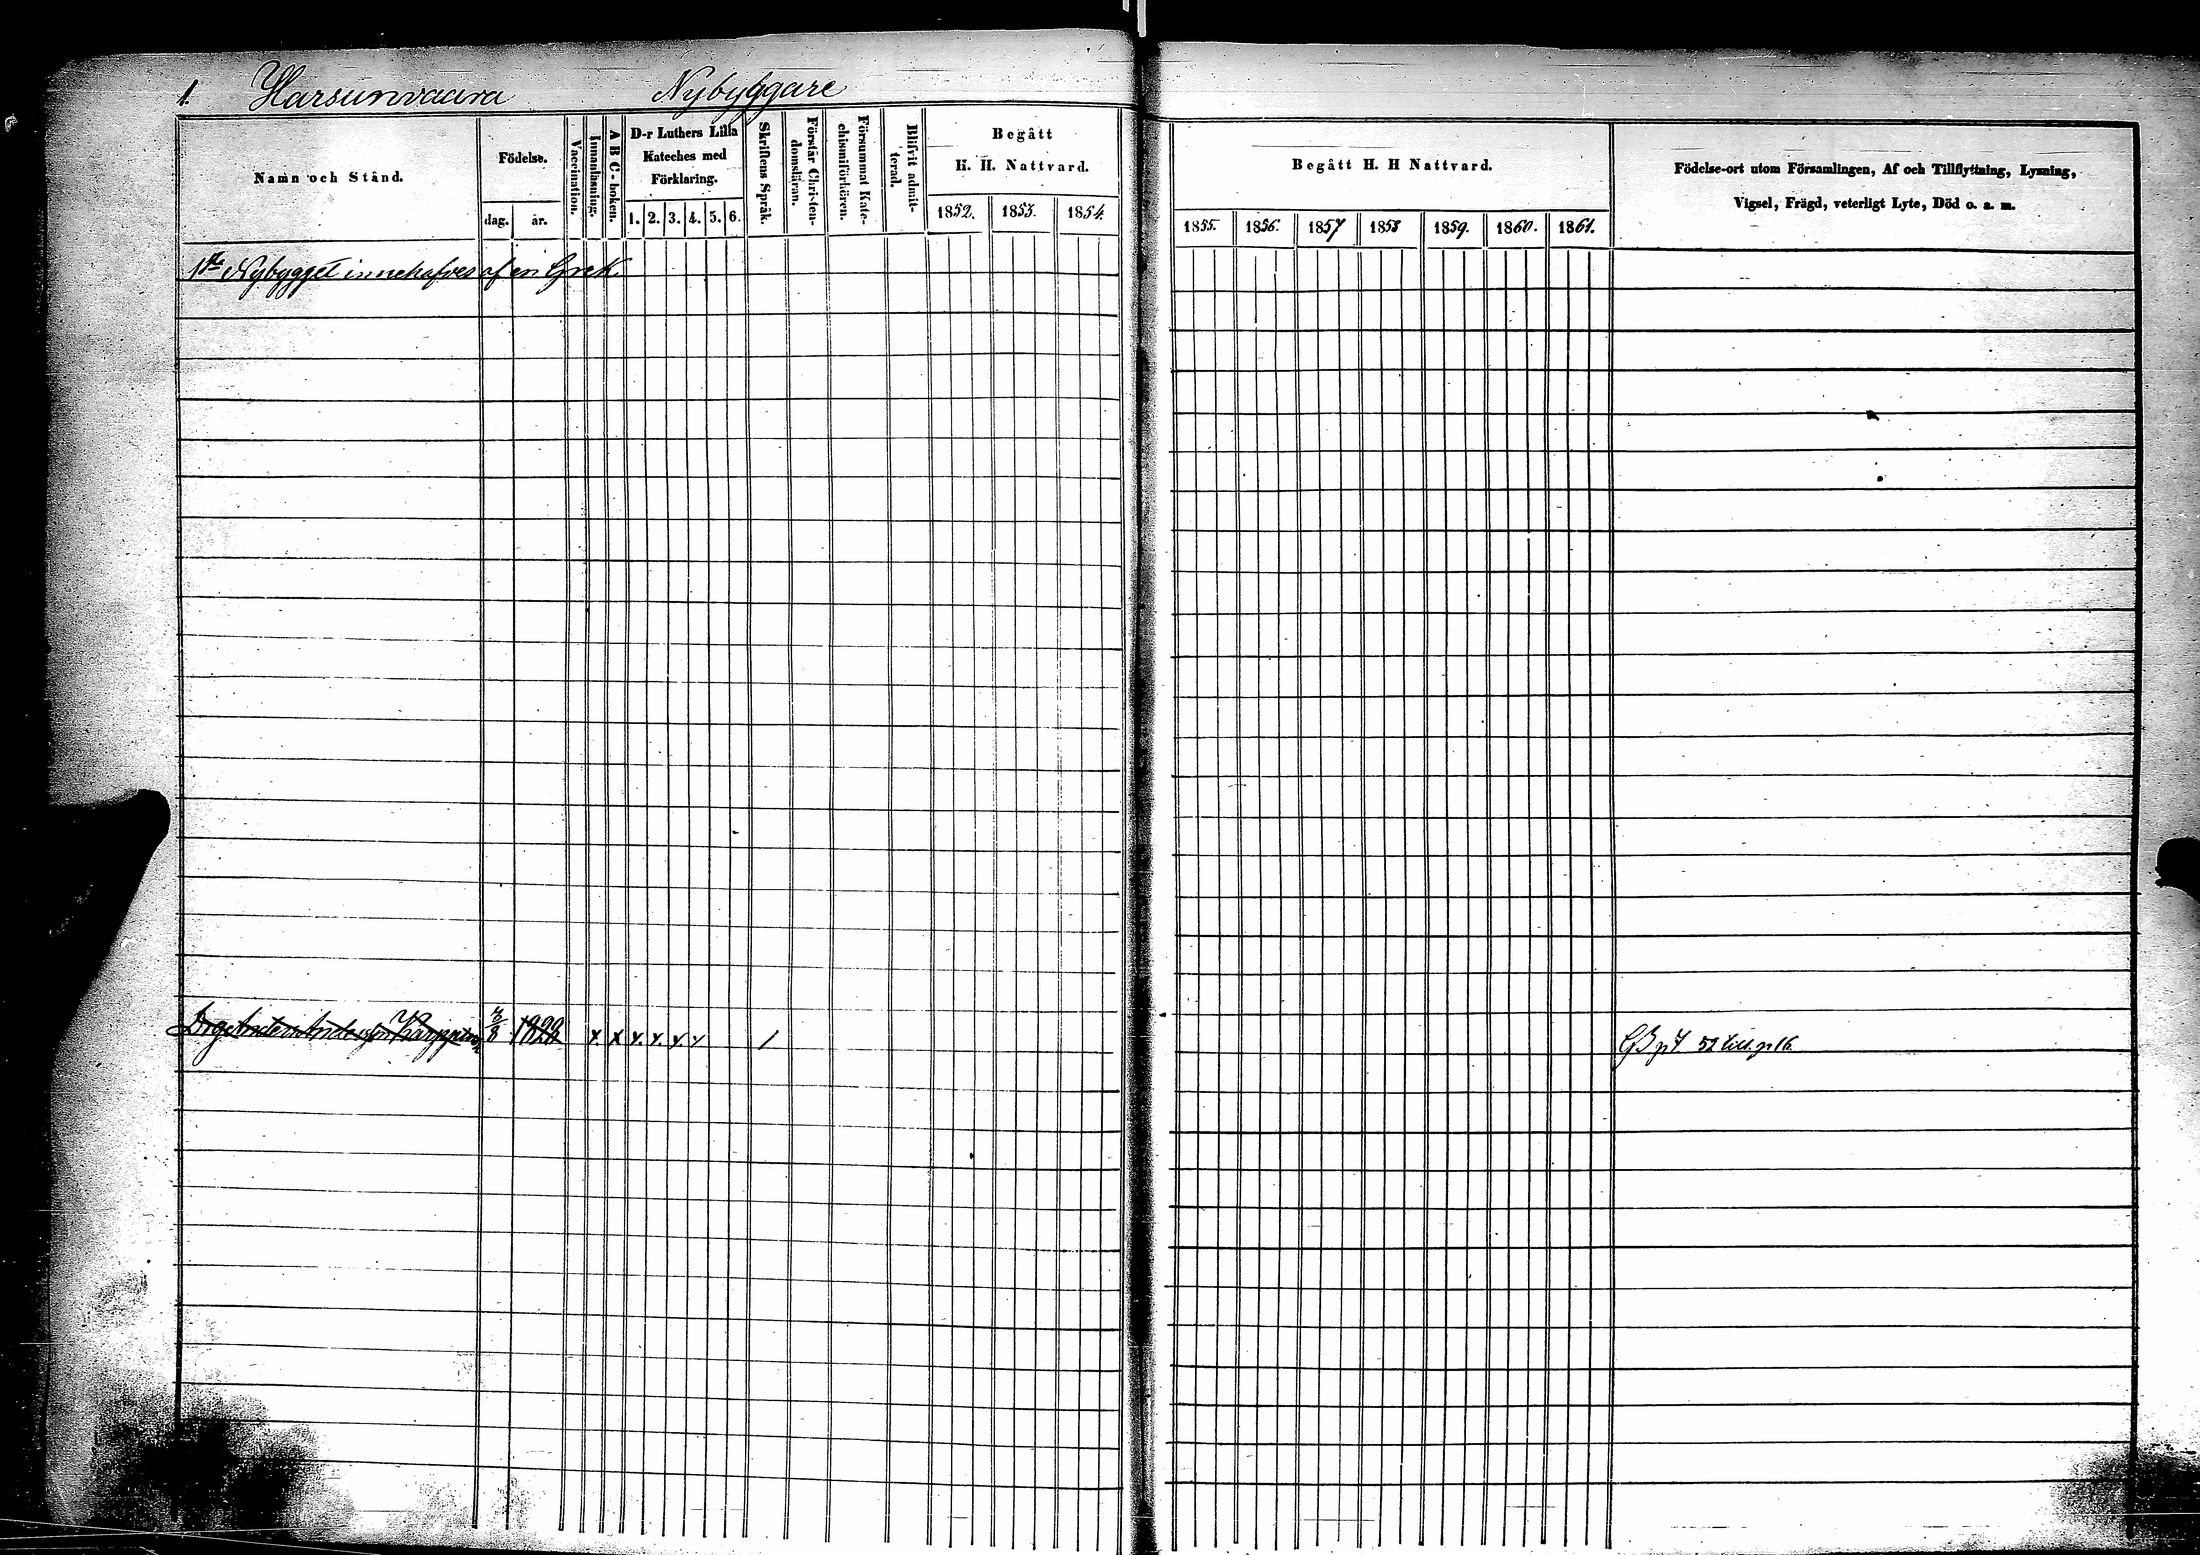 1. Harsunvaara Nybyggare
Namn och Stånd.
Födelse.
dag. år.
Vaccination.
Innanläsning.
A B C-boken.
D-r Luthers Lilla
Kateches med
Förklaring.
1. 2. 3. 4. 5. 6.
Skriftens Språk.
Förstår Christen-
domsläran.
Försummat Kate-
chismiförhören.
Blifvit admit-
terad.
Begått
H. H. Nattvard.
1852. 1853. 1854.
Begått H. H Nattvard.
1855. 1856. 1857 1858 1859. 1860. 1861.
Födelse-ort utom Församlingen, Af och Tillflyttning, Lysning,
Vigsel, Frägd, veterligt Lyte, Död o. s. m.
1sta Nybygget innehafves af en Grek
Drg Anders Andersson Karppinen 8 1828 x. x x. x. x. x 1 52 till. p 16.